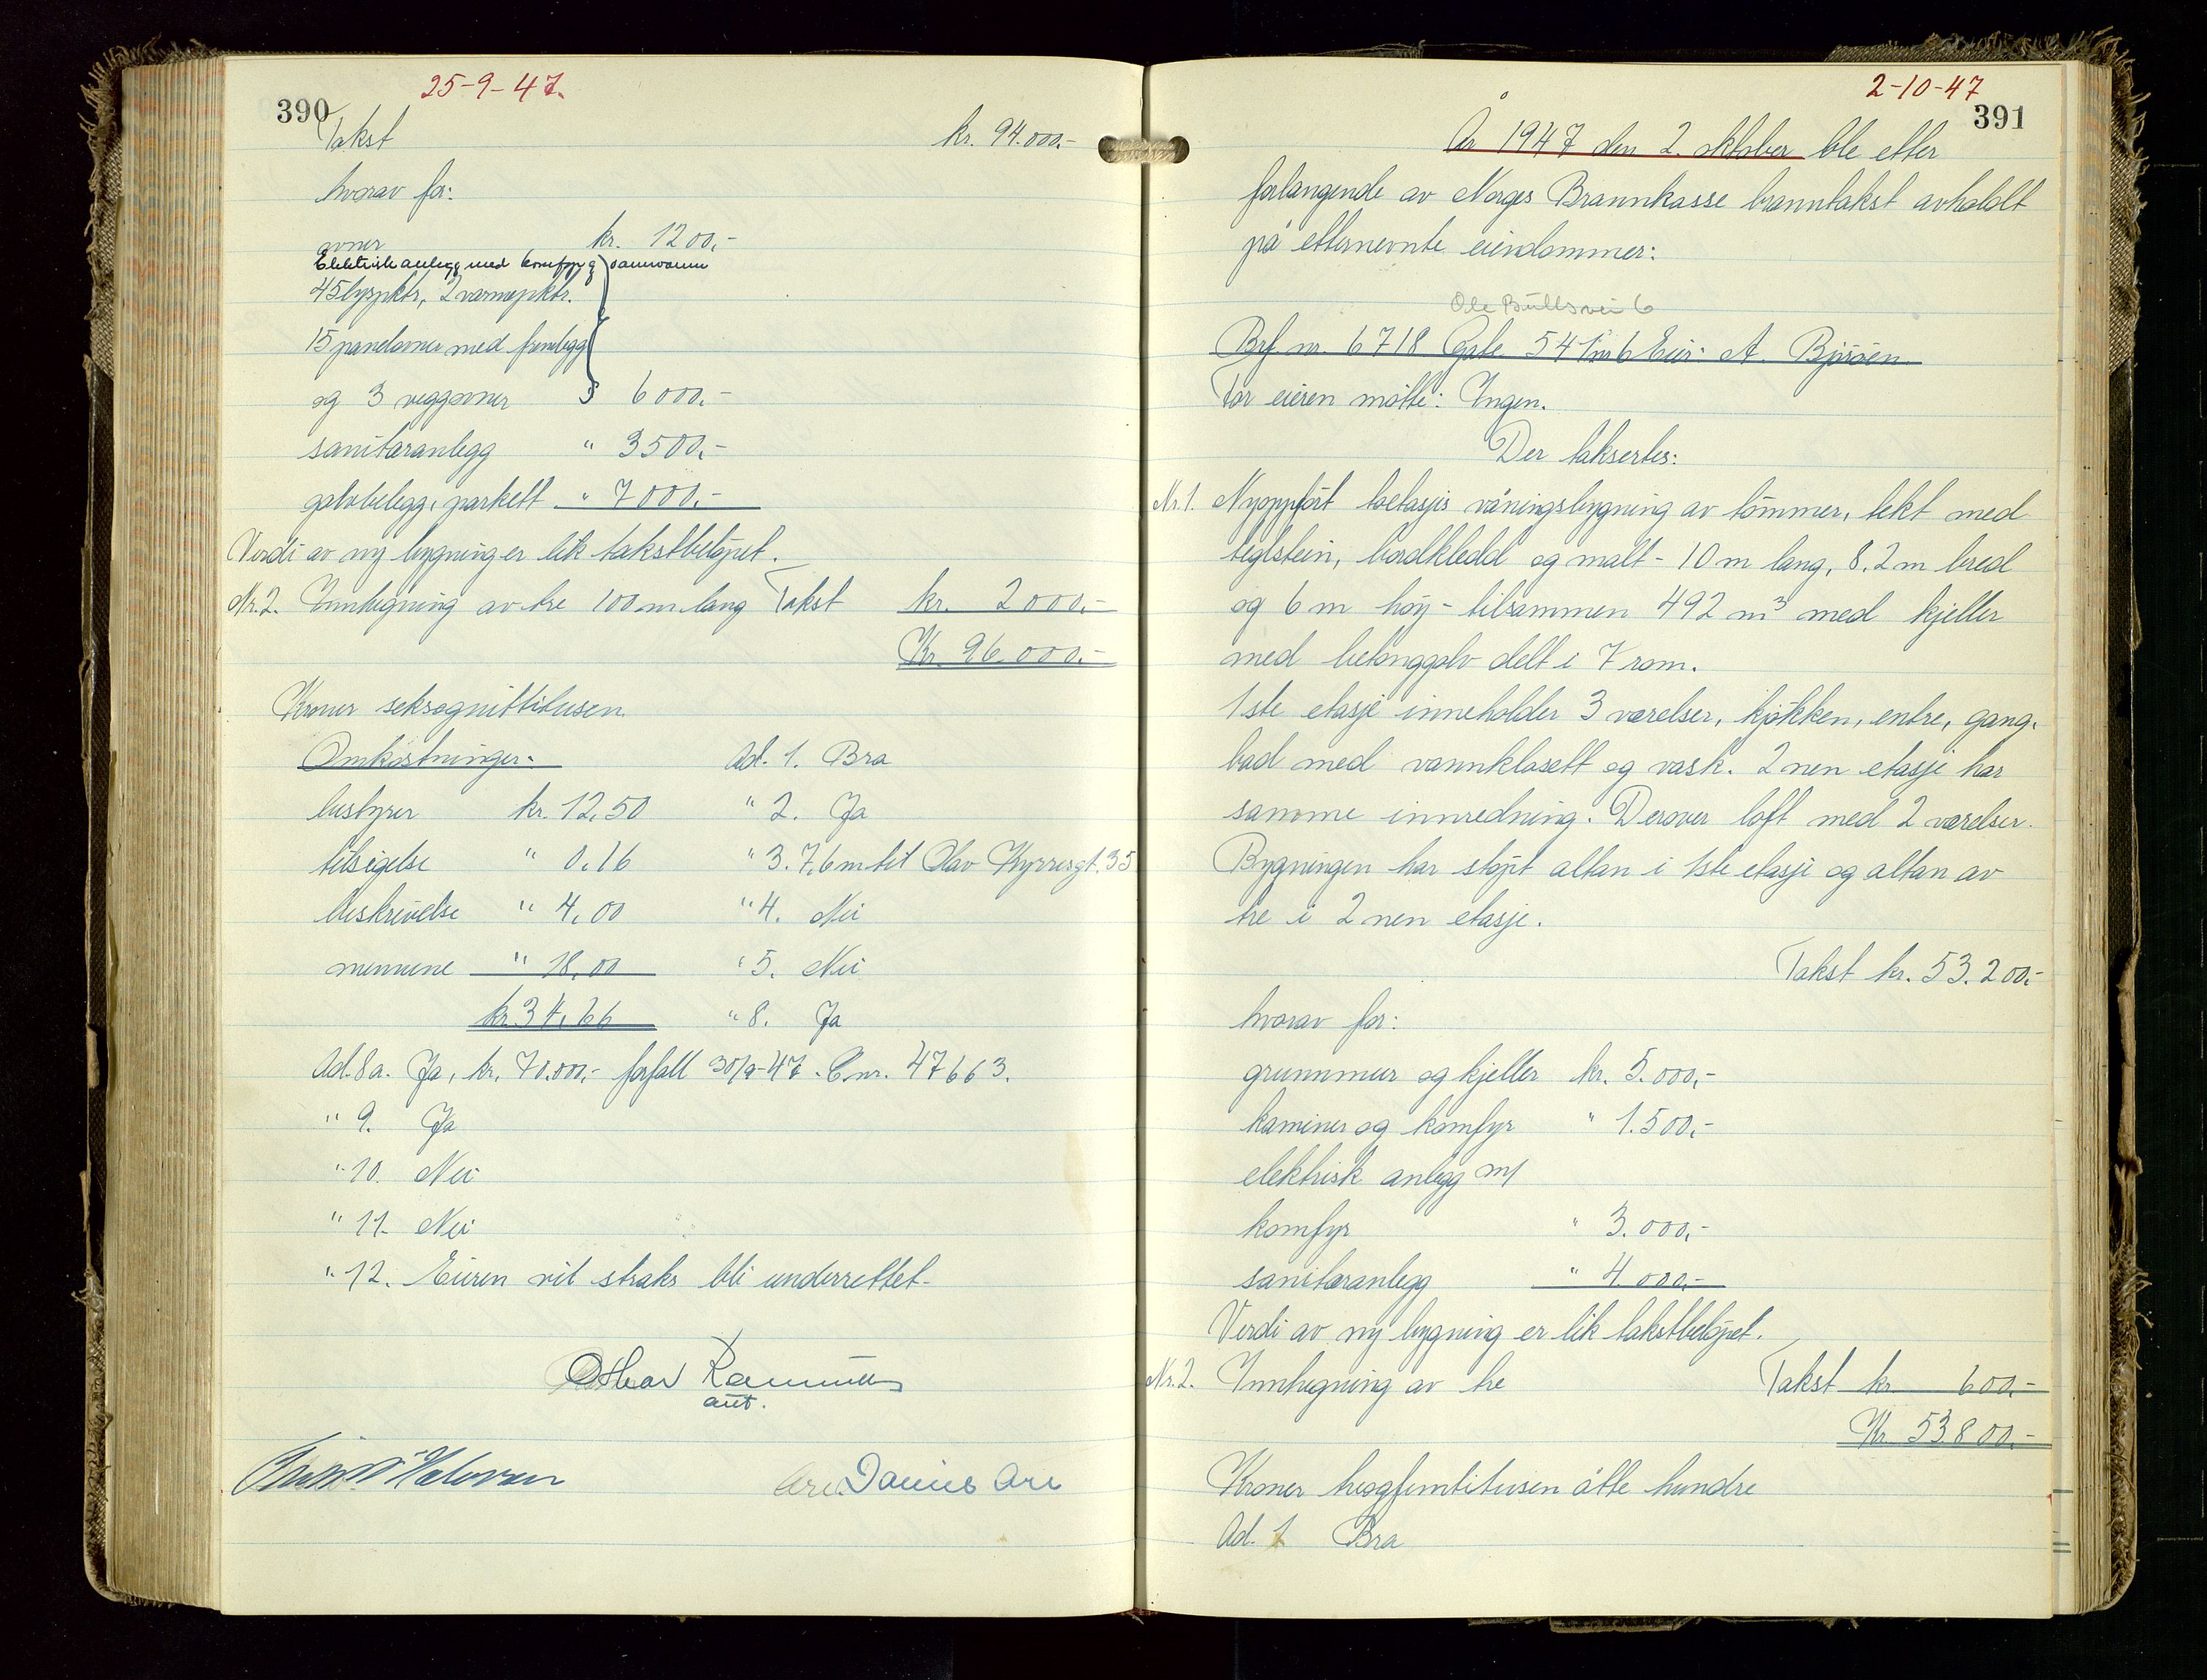 25-9-47.
390
Takst kr. 94.000.-
hvorav for:
ovner kr. 1200.-
Elektrisk anlegg med komfyr
45 lyspktr, 2 varmepktr.
15 panelovner med fremlegg
og 3 veggovner " 6000.-
sanitæranlegg " 3500.-
golvbelegg, parkett " 7000.-
Verdi av ny bygning er lik takstbeløpet.
Nr. 2. Innhegning av tre 100 m lang Takst kr. 2000.-
Kr. 96.000.-
Kroner seksognittitusen
Omkostninger: Ad. 1. Bra
bestyrer kr. 12,50 " 2. Ja
tilsigelse " 0,16 " 3. 7,6 m til Olav Kyrresgt. 35
beskrivelse " 4,00 " 4. Nei
mennene " 18,00 " 5. Nei
kr. 34,66 " 8. Ja
Ad. 8a. Ja, kr. 70.000,- forfall 30/9-47. C nr. 47663.
" 9. Ja
" 10. Nei
" 11. Nei
" 12. Eieren vil straks bli underrettet.
aut.
2-10-47
391
År 1947 den 2. oktober ble etter
forlangende av Norges Brannkasse branntakst avholdt
på etternevnte eiendommer:
Ole Bullsvei 6
Brf nr. 6718 Gate 541 nr 6 Eier: A. Bjørøen
For eieren møtte: Ingen.
Der taksertes:
Nr. 1. Nyoppført toetasjes våningsbygning av tømmer, tekt med
teglstein, bordkledd og malt - 10 m lang, 8.2 m bred
og 6 m høy - tilsammen 492 m³ med kjeller
med betonggolv delt i 7 rom.
1ste etasje inneholder 3 værelser, kjøkken, entre, gang,
bad med vannklosett og vask. 2nen etasje har
samme innredning. Derover loft med 2 værelser.
Bygningen har støpt altan i 1ste etasje og altan av
tre i 2nen etasje.
Takst kr. 53.200.-
hvorav for:
grunnmur og kjeller kr. 5.000,-
kaminer og komfyr " 1.500,-
elektrisk anlegg m/
komfyr " 3.000,-
sanitæranlegg " 4.000,-
Verdi av ny bygning er lik takstbeløpet.
Nr. 2. Innhegning av tre Takst kr 600,-
Kr. 53800,-
Kroner treogfemtitusen åtte hundre
Ad. 1 Bra